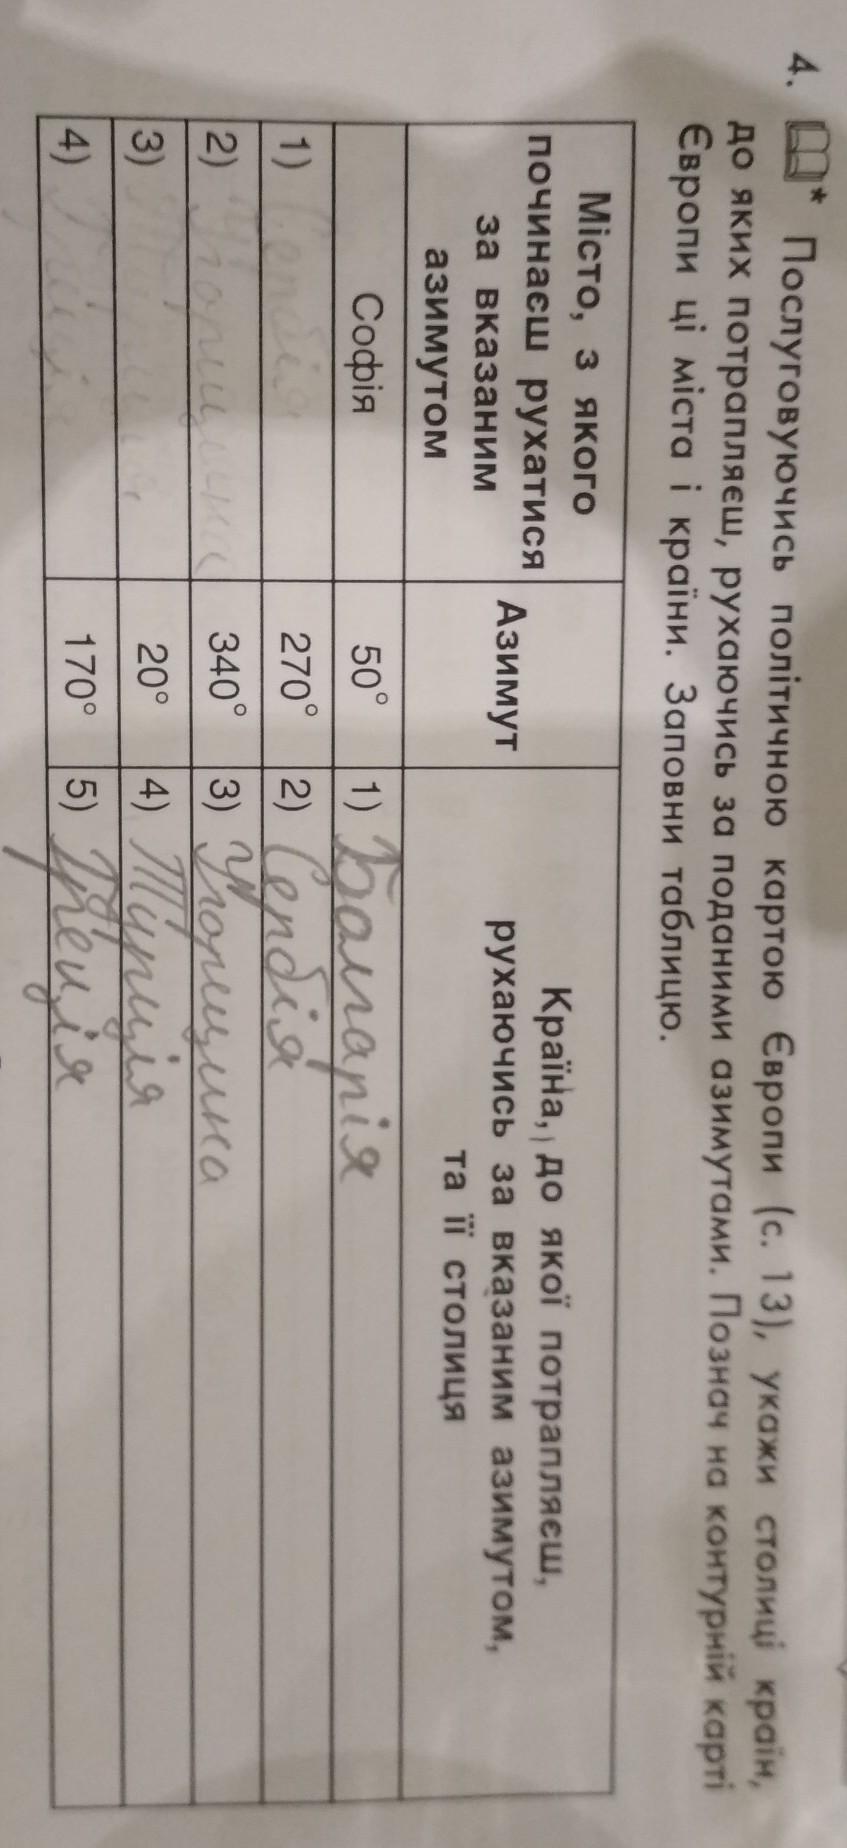 4. * Послуговуючись політичною картою Європи (с. 13), укажи столиці країн,
до яких потрапляєш, рухаючись за поданими азимутами. Познач на контурній карті
Європи ці міста і країни. Заповни таблицю.
Місто, з якого
починаєш рухатися
за вказаним
азимутом
Азимут
Країна, до якої потрапляєш,
рухаючись за вказаним азимутом,
та її столиця
Софія 50° 1) Болгарія
1) Сербія 270° 2) Сербія
2) Угорщина 340° 3) Угорщина
3) Турція 20° 4) Турція
4) Греція 170° 5) Греція